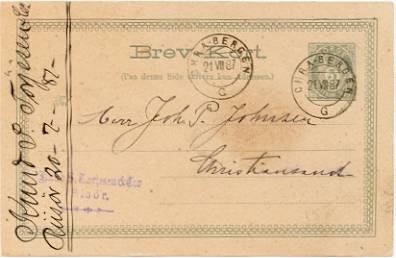 Brev-Kort
(Paa denne Side skrives kun Adressen.)
CHRA-BERGEN
21 VII 87
G
CHRA-BERGEN
21 VII 87
G
Herr Joh. P. Johnsen
Christiansund
Knud
Risör 20-7-87-